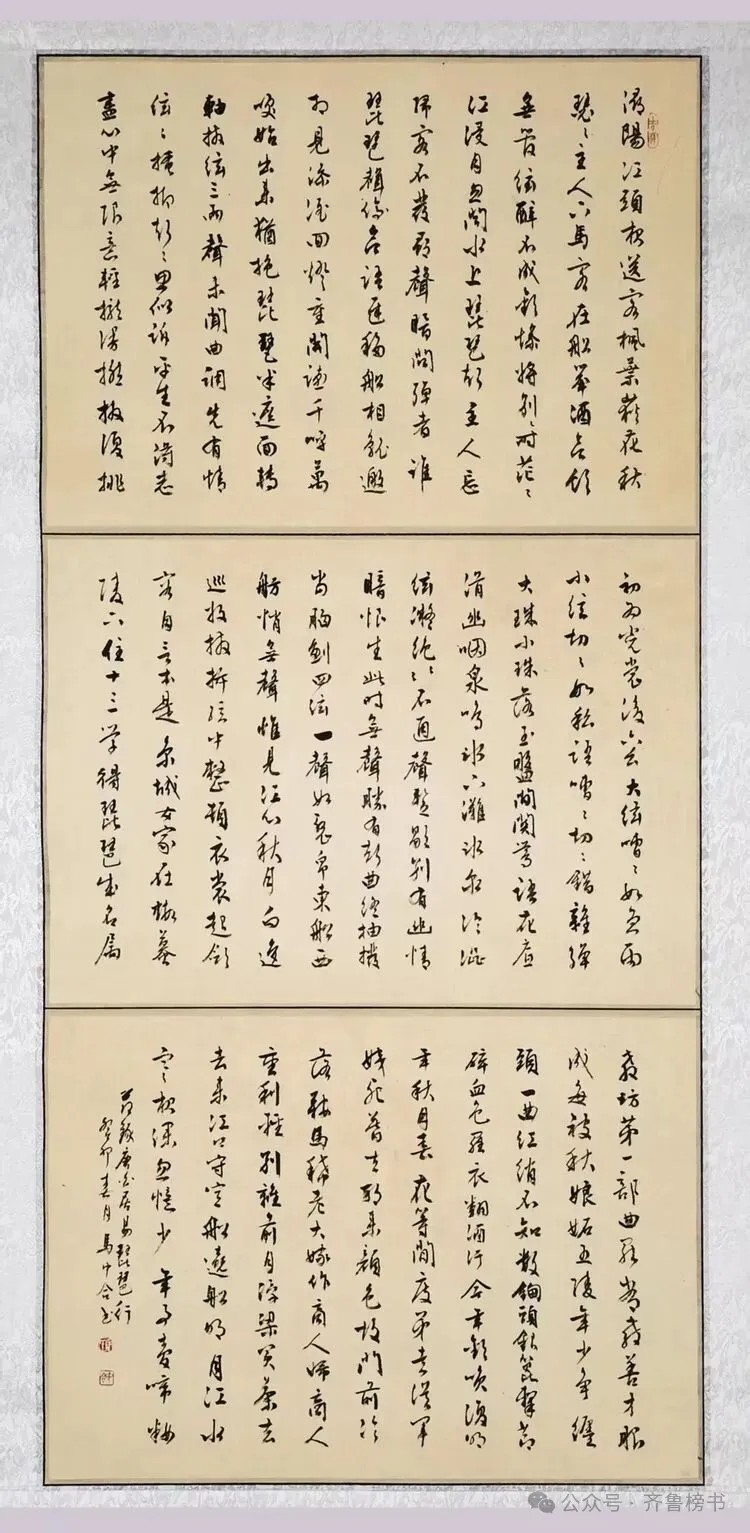 潯陽江頭夜送客楓葉荻花秋
瑟々主人下馬客在船舉酒欲飲
無管弦醉不成歡慘將別々時茫々
江浸月忽聞水上琵琶聲主人忘
歸客不發尋聲暗問彈者誰
琵琶聲停欲語遲移船相就邀
相見添酒回燈重開宴千呼萬
喚始出來猶抱琵琶半遮面轉
軸撥弦三兩聲未聞曲調先有情
弦々掩抑聲々思似訴平生不得志
盡心中無限輕攏慢撚抹復挑
初為霓裳後六幺大弦嘈々如急雨
小弦切々如私語嘈々切々錯雜彈
大珠小珠落玉盤間關鶯語花底
滑幽咽泉鳴冰下灘冰泉冷澀
弦凝絕々不通聲暫歇別有幽情
暗恨生此時無聲勝有聲曲終抽撥
當胸劃四弦一聲如裂帛東船西
舫悄無聲惟見江心秋月白逡
巡撥插弦中整頓衣裳起斂
容自言本是京城女家在蝦蟆
陵下住十三學得琵琶成名屬
教坊第一部曲罷常教善才服
成每被秋娘妒五陵年少爭纏
頭一曲紅綃不知數鈿頭銀篦擊節
碎血色羅衣翻酒汙今年歡笑復明
年秋月春花等閒度弟走從軍
姨死暮去朝來顏色故門前冷
落鞍馬稀老大嫁作商人婦商人
重利輕別離前月浮梁買茶去
去來江口守空船遶船明月江水
寒夜深忽憶少年事夢啼妝
節錄唐白居易琵琶行
癸卯春月馬書
公众号·齐鲁榜书